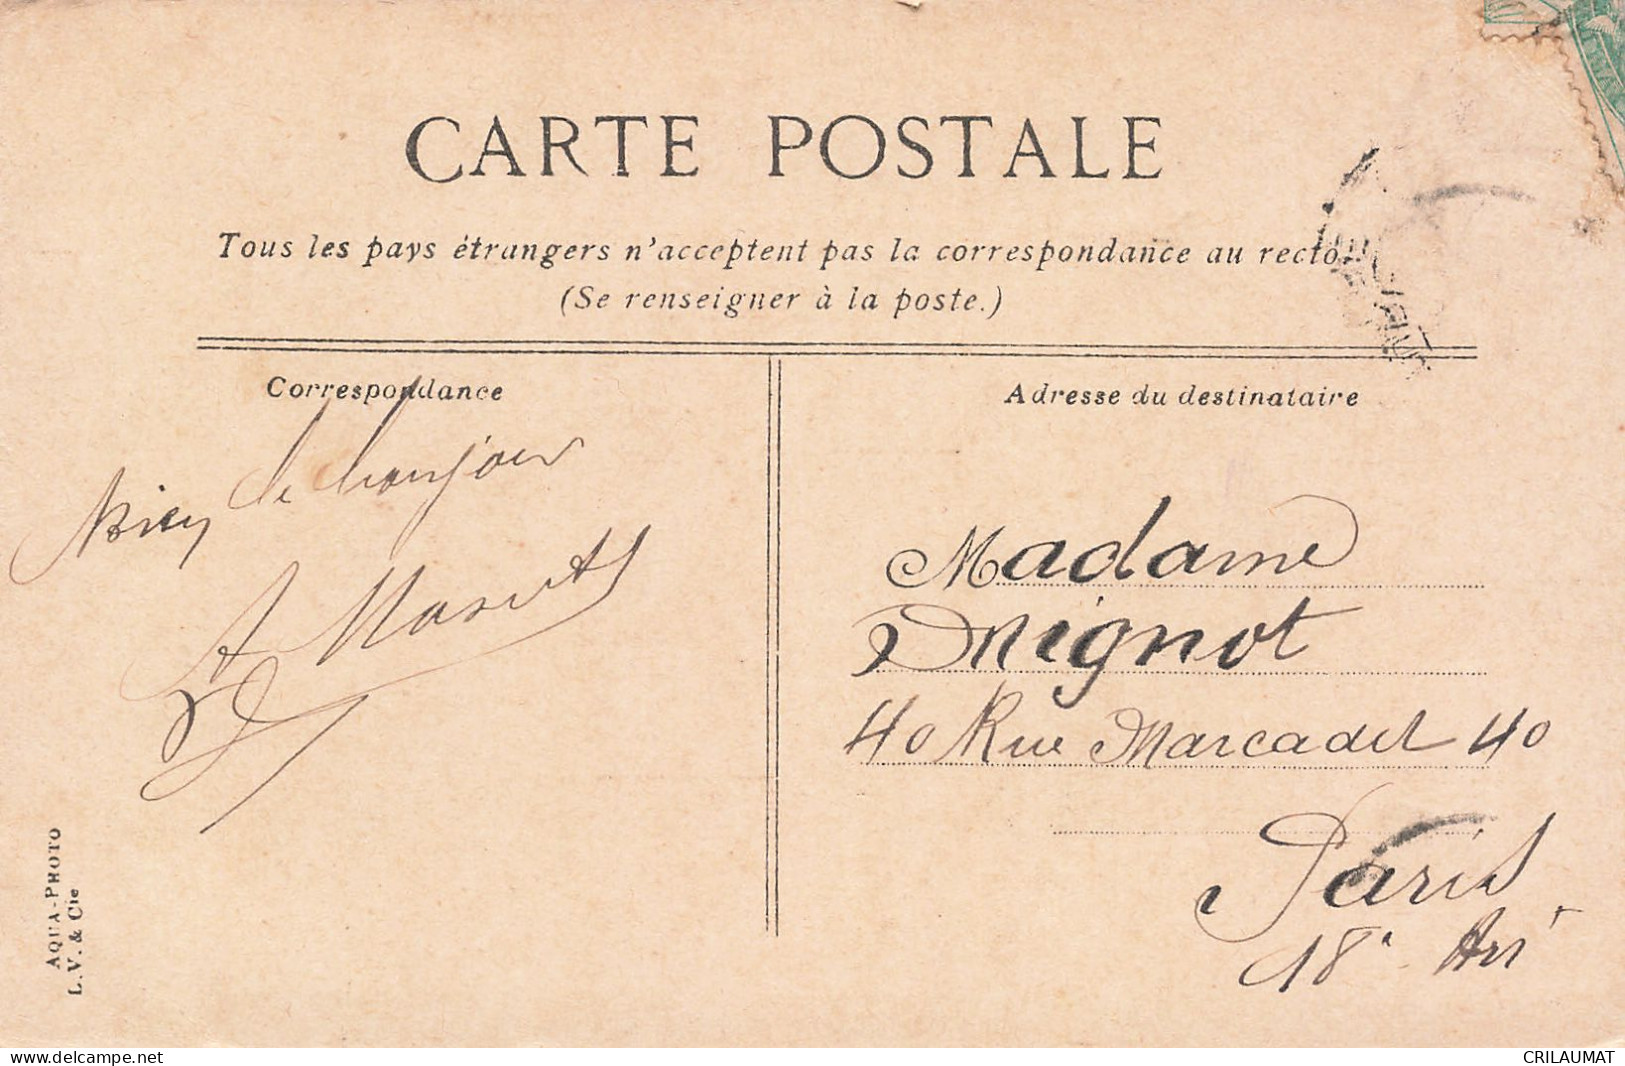 CARTE POSTALE
Tous les pays étrangers n'acceptent pas la correspondance au recto.
(Se renseigner à la poste.)
Correspondance
le bonjour
Adresse du destinataire
Madame
Mignot
40 Rue Marcadet 40
Paris
18e Arrt
AQUA-PHOTO
L. V. & Cie
www.delcampe.net
CRILAUMAT